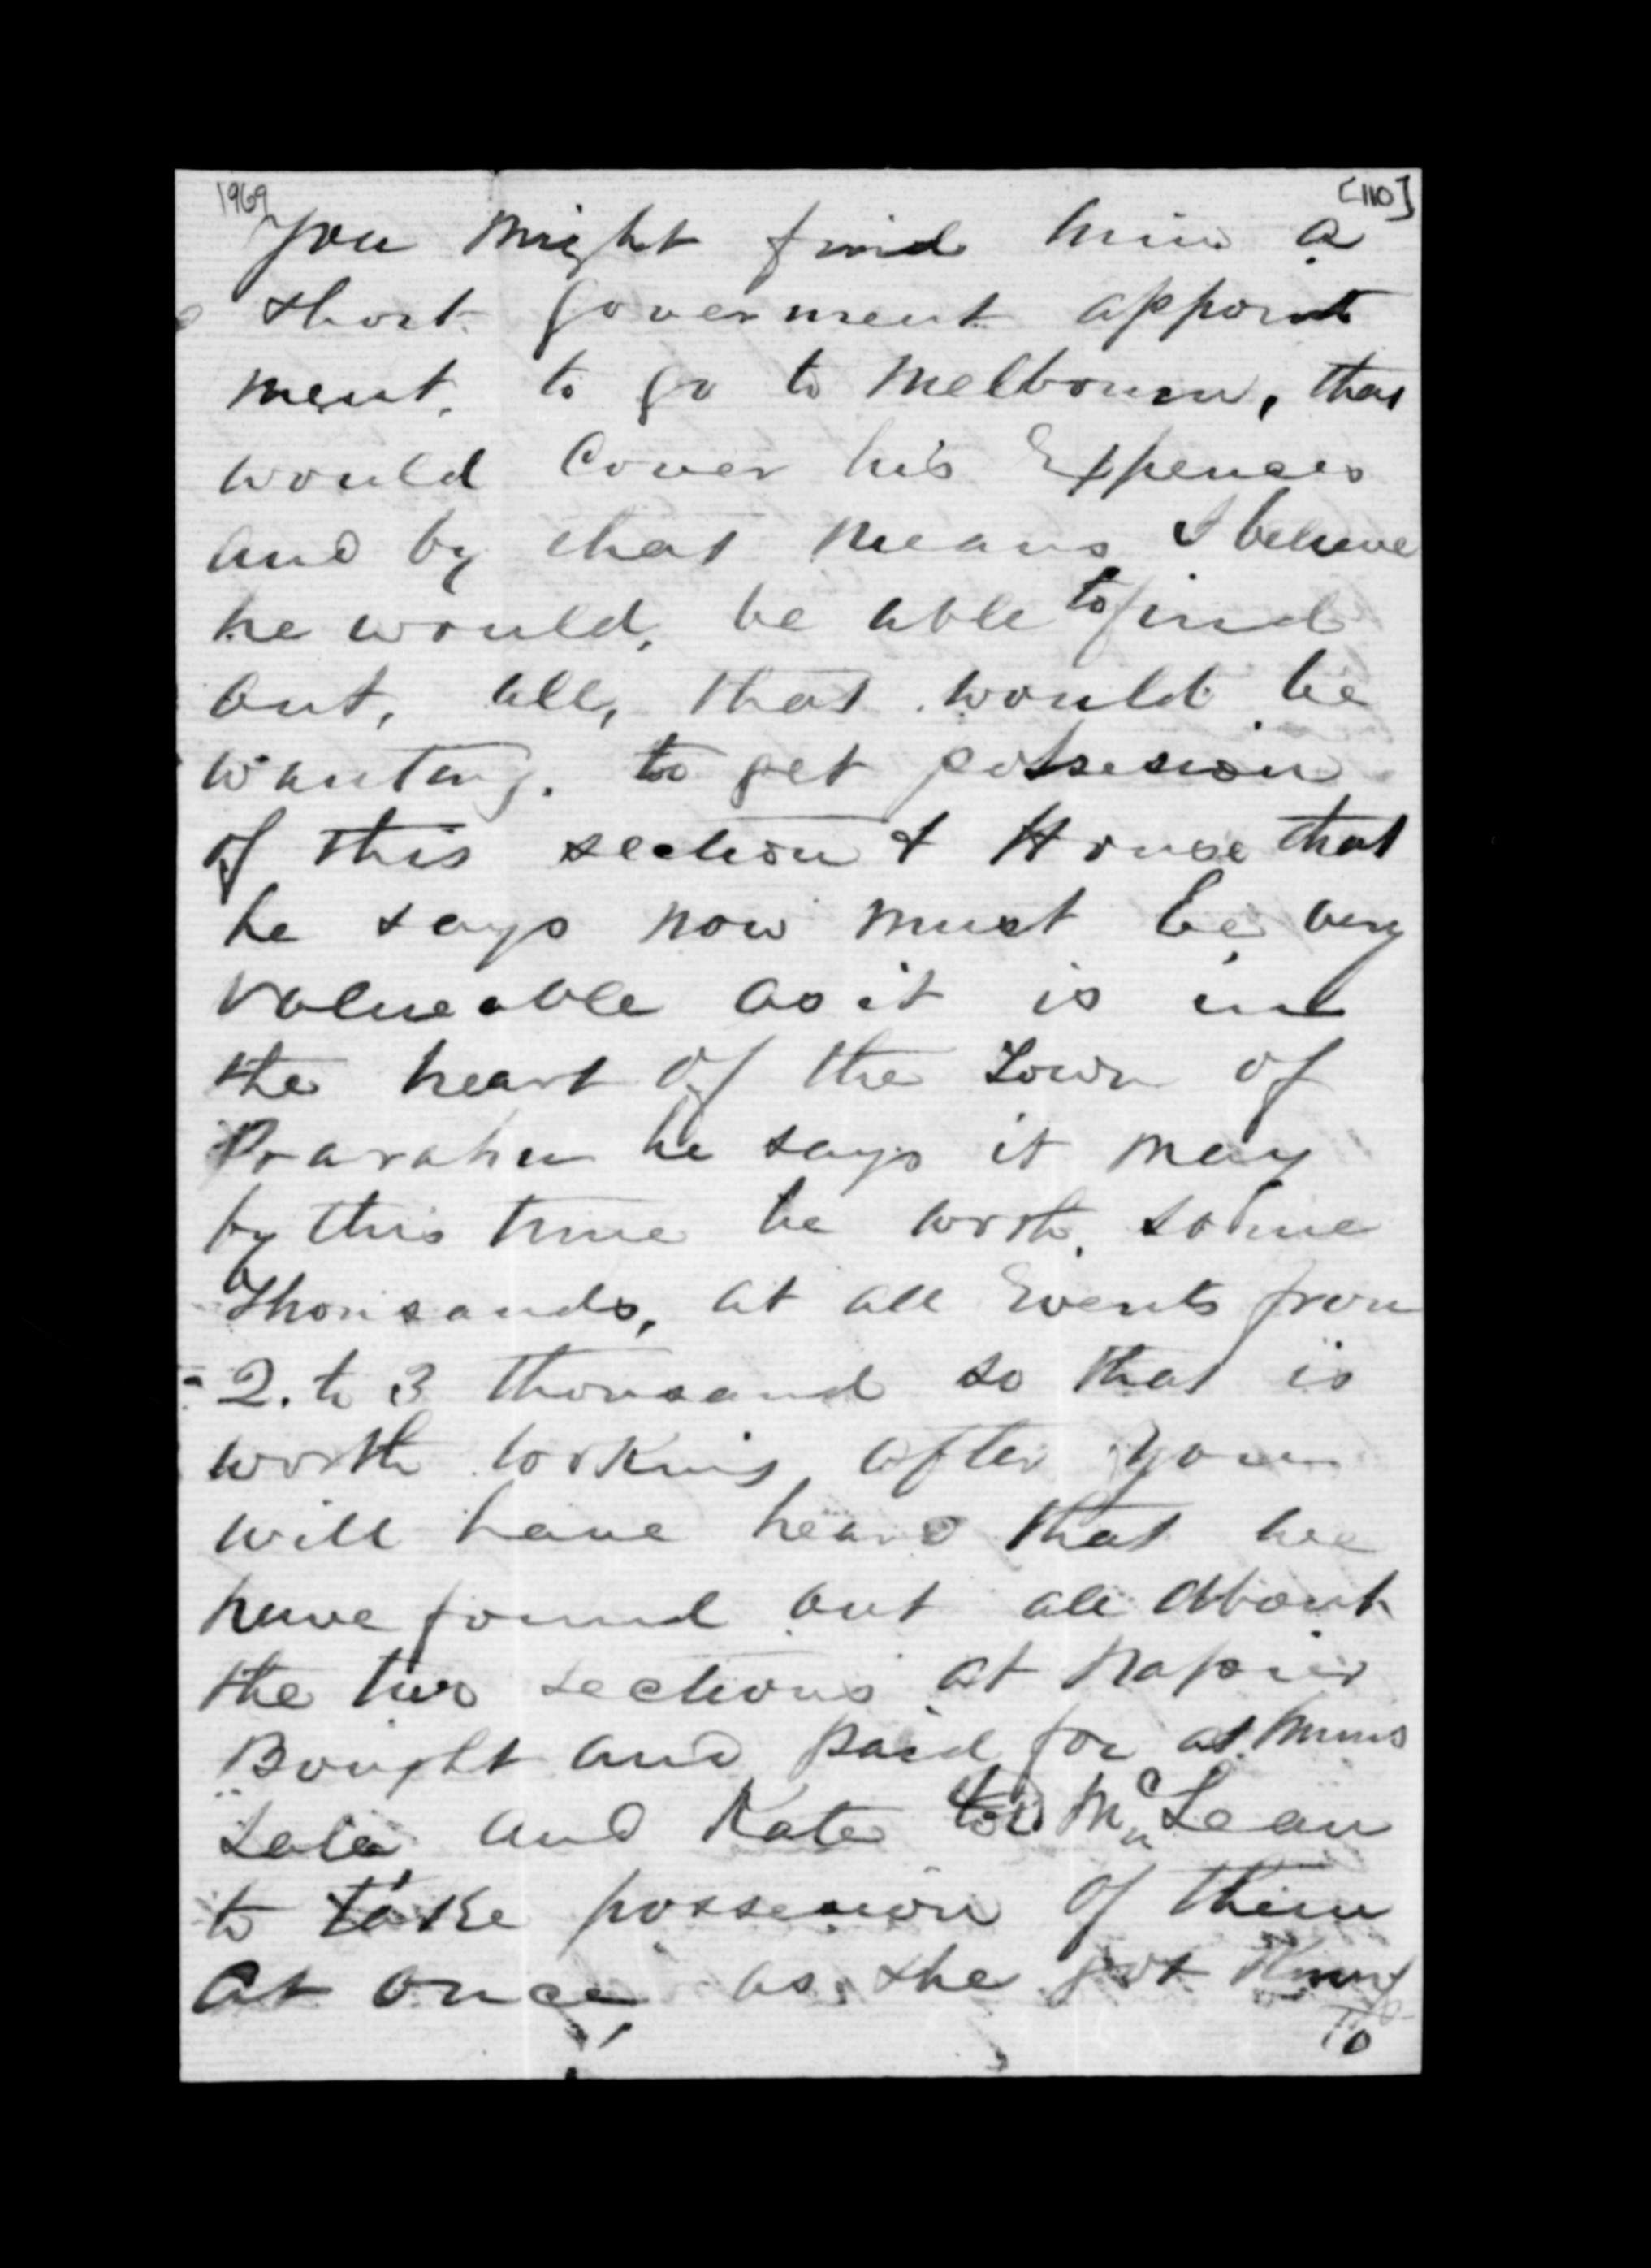 1969
[110]
You might find him a
short goverment appoint
ment, to go to Melbourn, that
would Cover his Expences
and by that means I believe
he would, be able to find
out, all, that would be
wanting. to get possesion
of this section & House that
he says now must be very
valueable as it is in
the heart of the Town of
Prarahn he says it may
by this time be worth, some
Thousands, at all Events from
2. to 3 thousand so that is
worth looking after you
will have heard that we
have found out all about
the two sections at Napier
Bought and paid for at
and Kate told McLean
to take possesion of them
at once, as she got
10